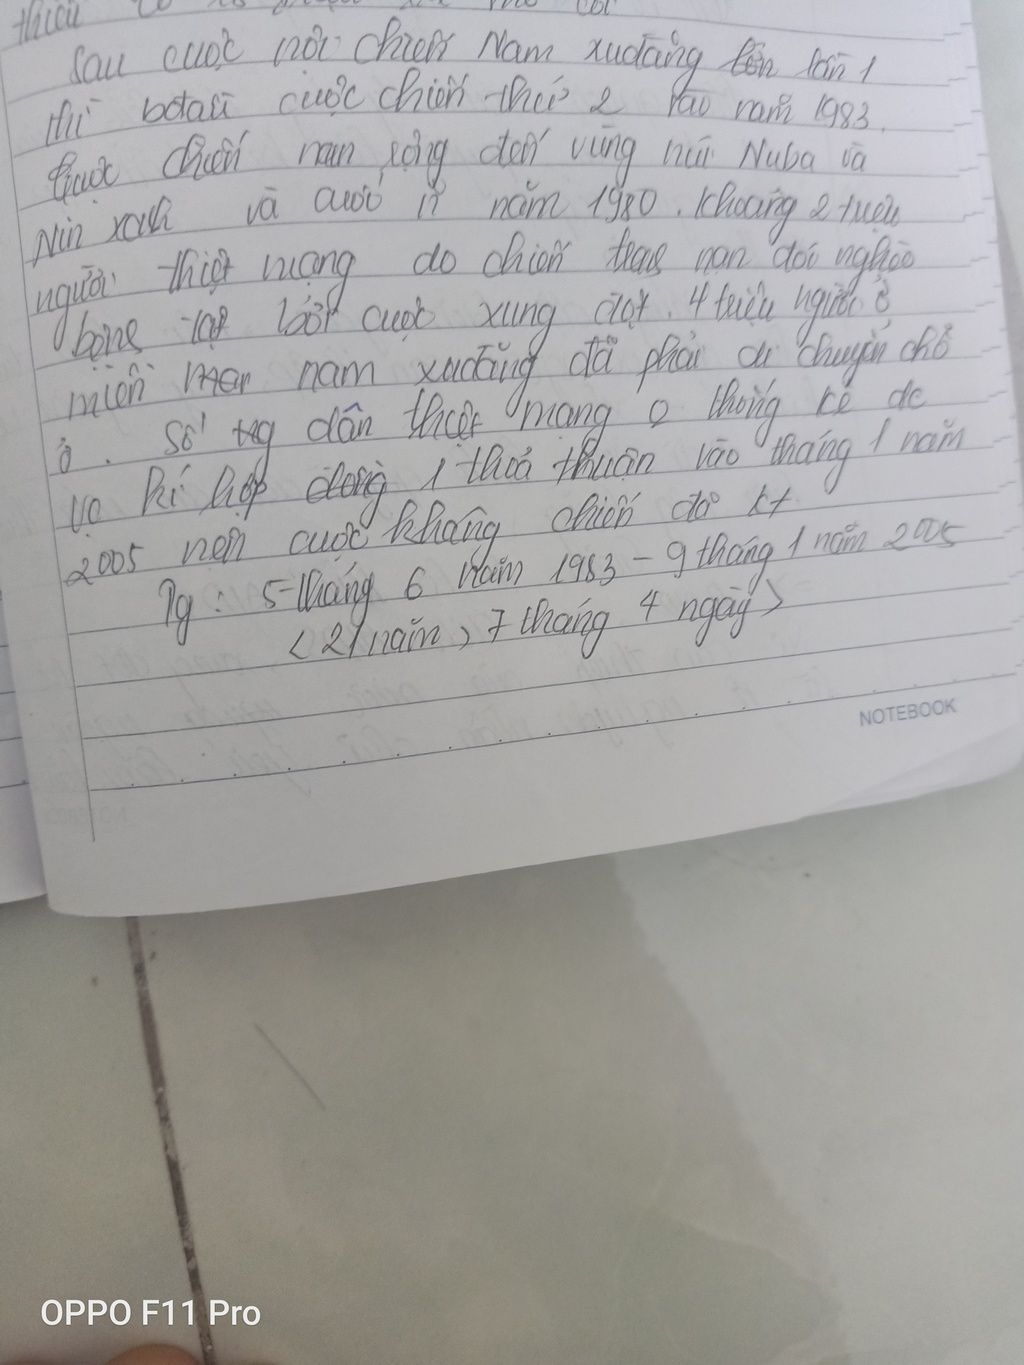 thiếu
Sau cuộc nội chiến Nam xuđăng lần 1
thì bắt đầu cuộc chiến thứ 2 vào năm 1983.
Cuộc chiến lan rộng đến vùng núi Nuba và
Nin xanh và cuối năm 1980. Khoảng 2 triệu
người thiệt mạng do chiến tranh nạn đói nghèo
bệnh tật bởi cuộc xung đột. 4 triệu người ở
miền nam xuđăng đã phải di chuyển chỗ
ở. Số ng dân thiệt mạng o thống kê dc
vo kí hợp đồng 1 thoả thuận vào tháng 1 năm
2005 nên cuộc kháng chiến đã kt
Tg: 5 tháng 6 năm 1983 - 9 tháng 1 năm 2005
< 21 năm, 7 tháng 4 ngày >
NOTEBOOK
OPPO F11 Pro